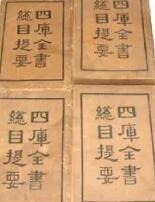 四庫全書
總目提要
四庫全書
總目提要
四庫全書
總目提要
四庫全書
總目提要